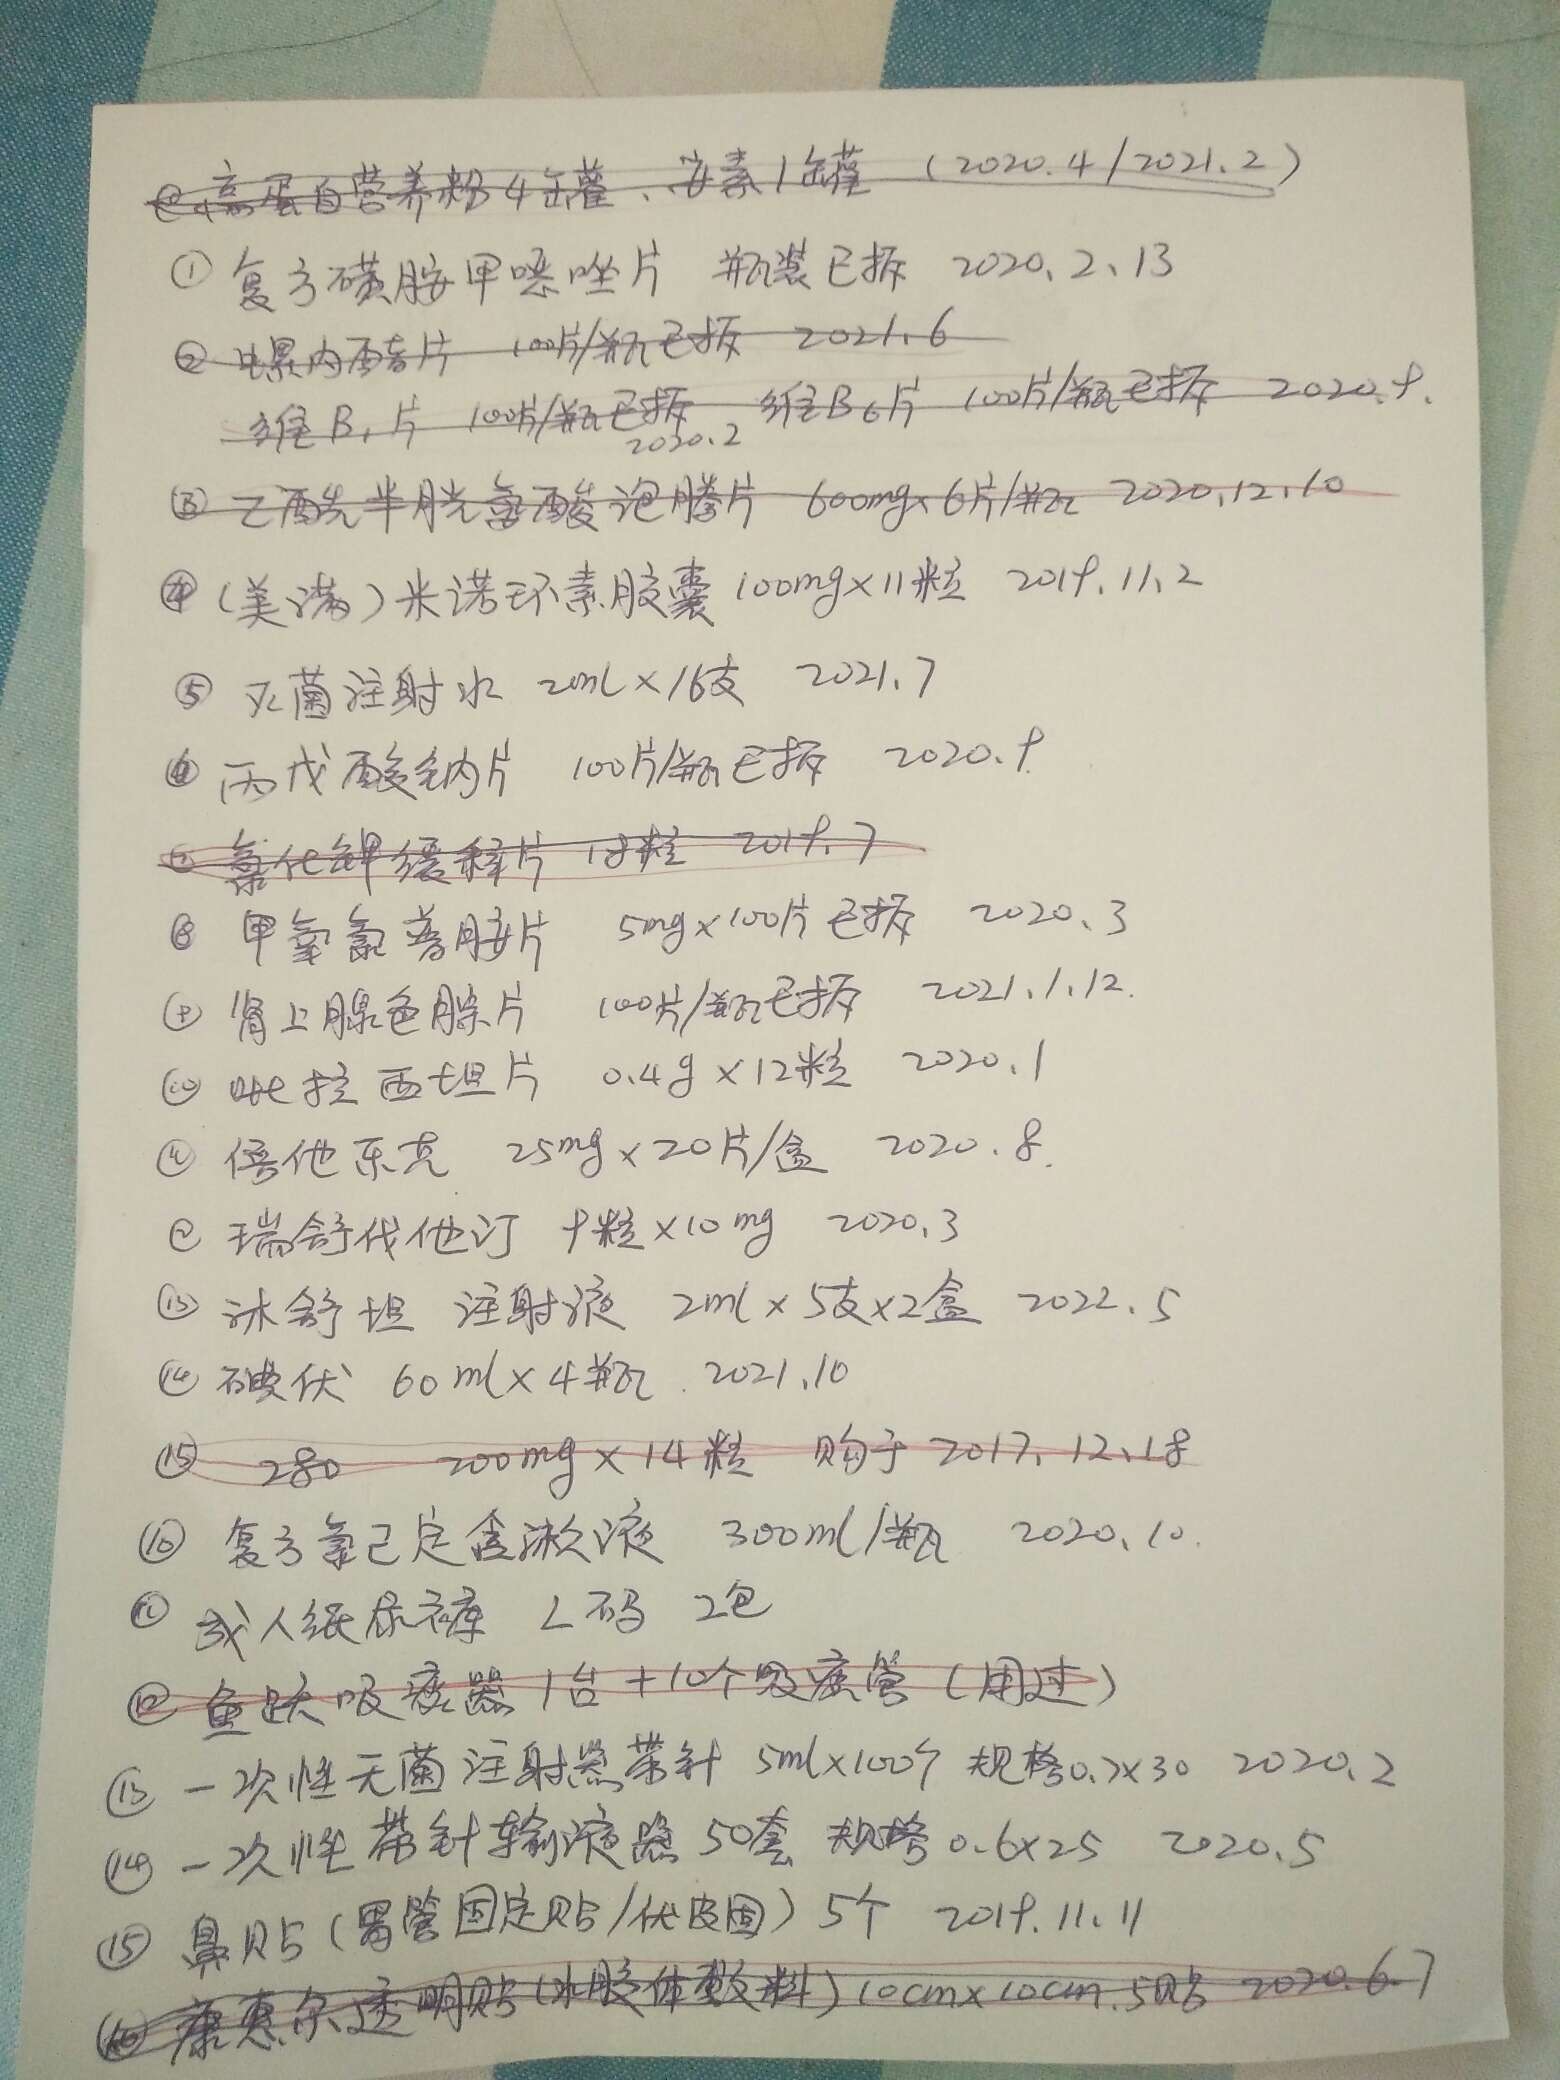 高蛋白营养粉4罐、安素1罐 (2020.4/2021.2)
① 复方磺胺甲噁唑片 瓶装已拆 2020.2.13
② 螺内酯片 100片/瓶已拆 2021.6
维B1片 100片/瓶已拆 维B6片 100片/瓶已拆 2020.9.
2020.2
③ 乙酰半胱氨酸泡腾片 600mg×6片/瓶 2020.12.10
④ (美满)米诺环素胶囊 100mg×11粒 2019.11.2
⑤ 灭菌注射水 2ml×16支 2021.7
⑥ 丙戊酸钠片 100片/瓶已拆 2020.9.
⑦ 氯化钾缓释片 18粒 2019.7
⑧ 甲氧氯普胺片 5mg×100片已拆 2020.3
⑨ 肾上腺色腙片 100片/瓶已拆 2021.1.12.
⑩ 吡拉西坦片 0.4g×12粒 2020.1
⑪ 倍他乐克 25mg×20片/盒 2020.8.
⑫ 瑞舒伐他汀 9粒×10mg 2020.3
⑬ 沐舒坦 注射液 2ml×5支×2盒 2022.5
⑭ 碘伏 60ml×4瓶 2021.10
⑮ 280 200mg×14粒 购于2017.12.18
⑩ 复方氯己定含漱液 300ml/瓶 2020.10.
⑪ 成人纸尿裤 L码 2包
⑫ 鱼跃吸痰器1台+10个吸痰管(用过)
⑬ 一次性无菌注射器带针 5ml×100个 规格0.7×30 2020.2
⑭ 一次性带针输液器50套 规格0.6×25 2020.5
⑮ 鼻贴(胃管固定贴/优皮固)5个 2019.11.11
⑯ 康惠尔透明贴(水胶体敷料)10cm×10cm.5贴 2020.6.7